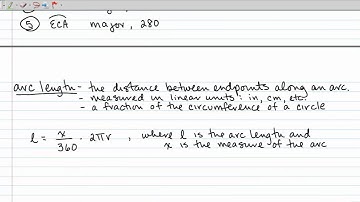 ⑤ ECA major, 280
arc length - the distance between endpoints along an arc.
- measured in linear units: in, cm, etc.
- a fraction of the circumference of a circle
l = x/360 · 2πr , where l is the arc length and
x is the measure of the arc